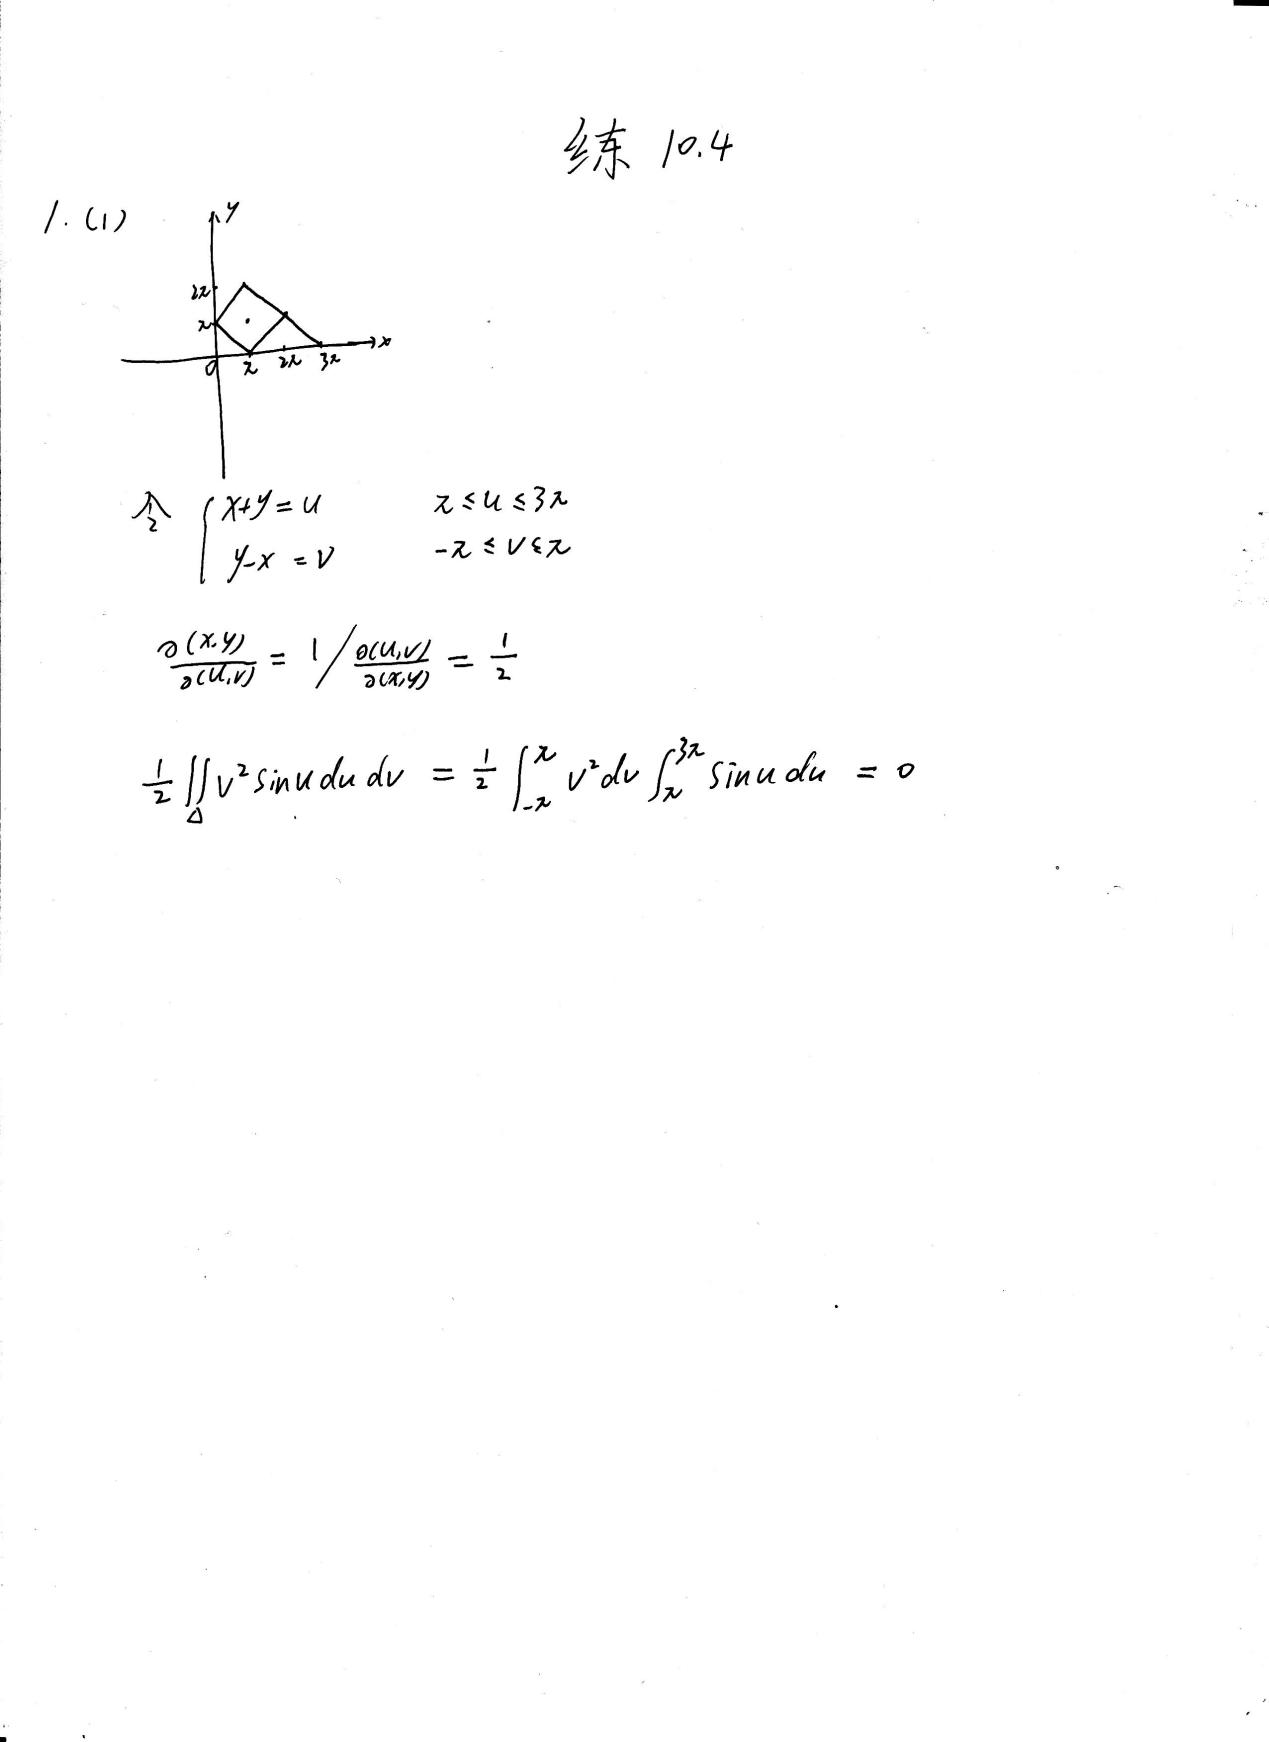 练 10.4
1. (1)
y
2π
π
0 π 2π 3π x
令 { x+y = u π ≤ u ≤ 3π
y-x = v -π ≤ v ≤ π
∂(x,y)/∂(u,v) = 1 / ∂(u,v)/∂(x,y) = 1/2
1/2 ∬_Δ v² sin u du dv = 1/2 ∫_{-π}^{π} v² dv ∫_{π}^{3π} sin u du = 0